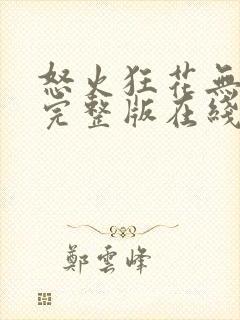 怒火狂花無
完整版在綫
鄭雲峰